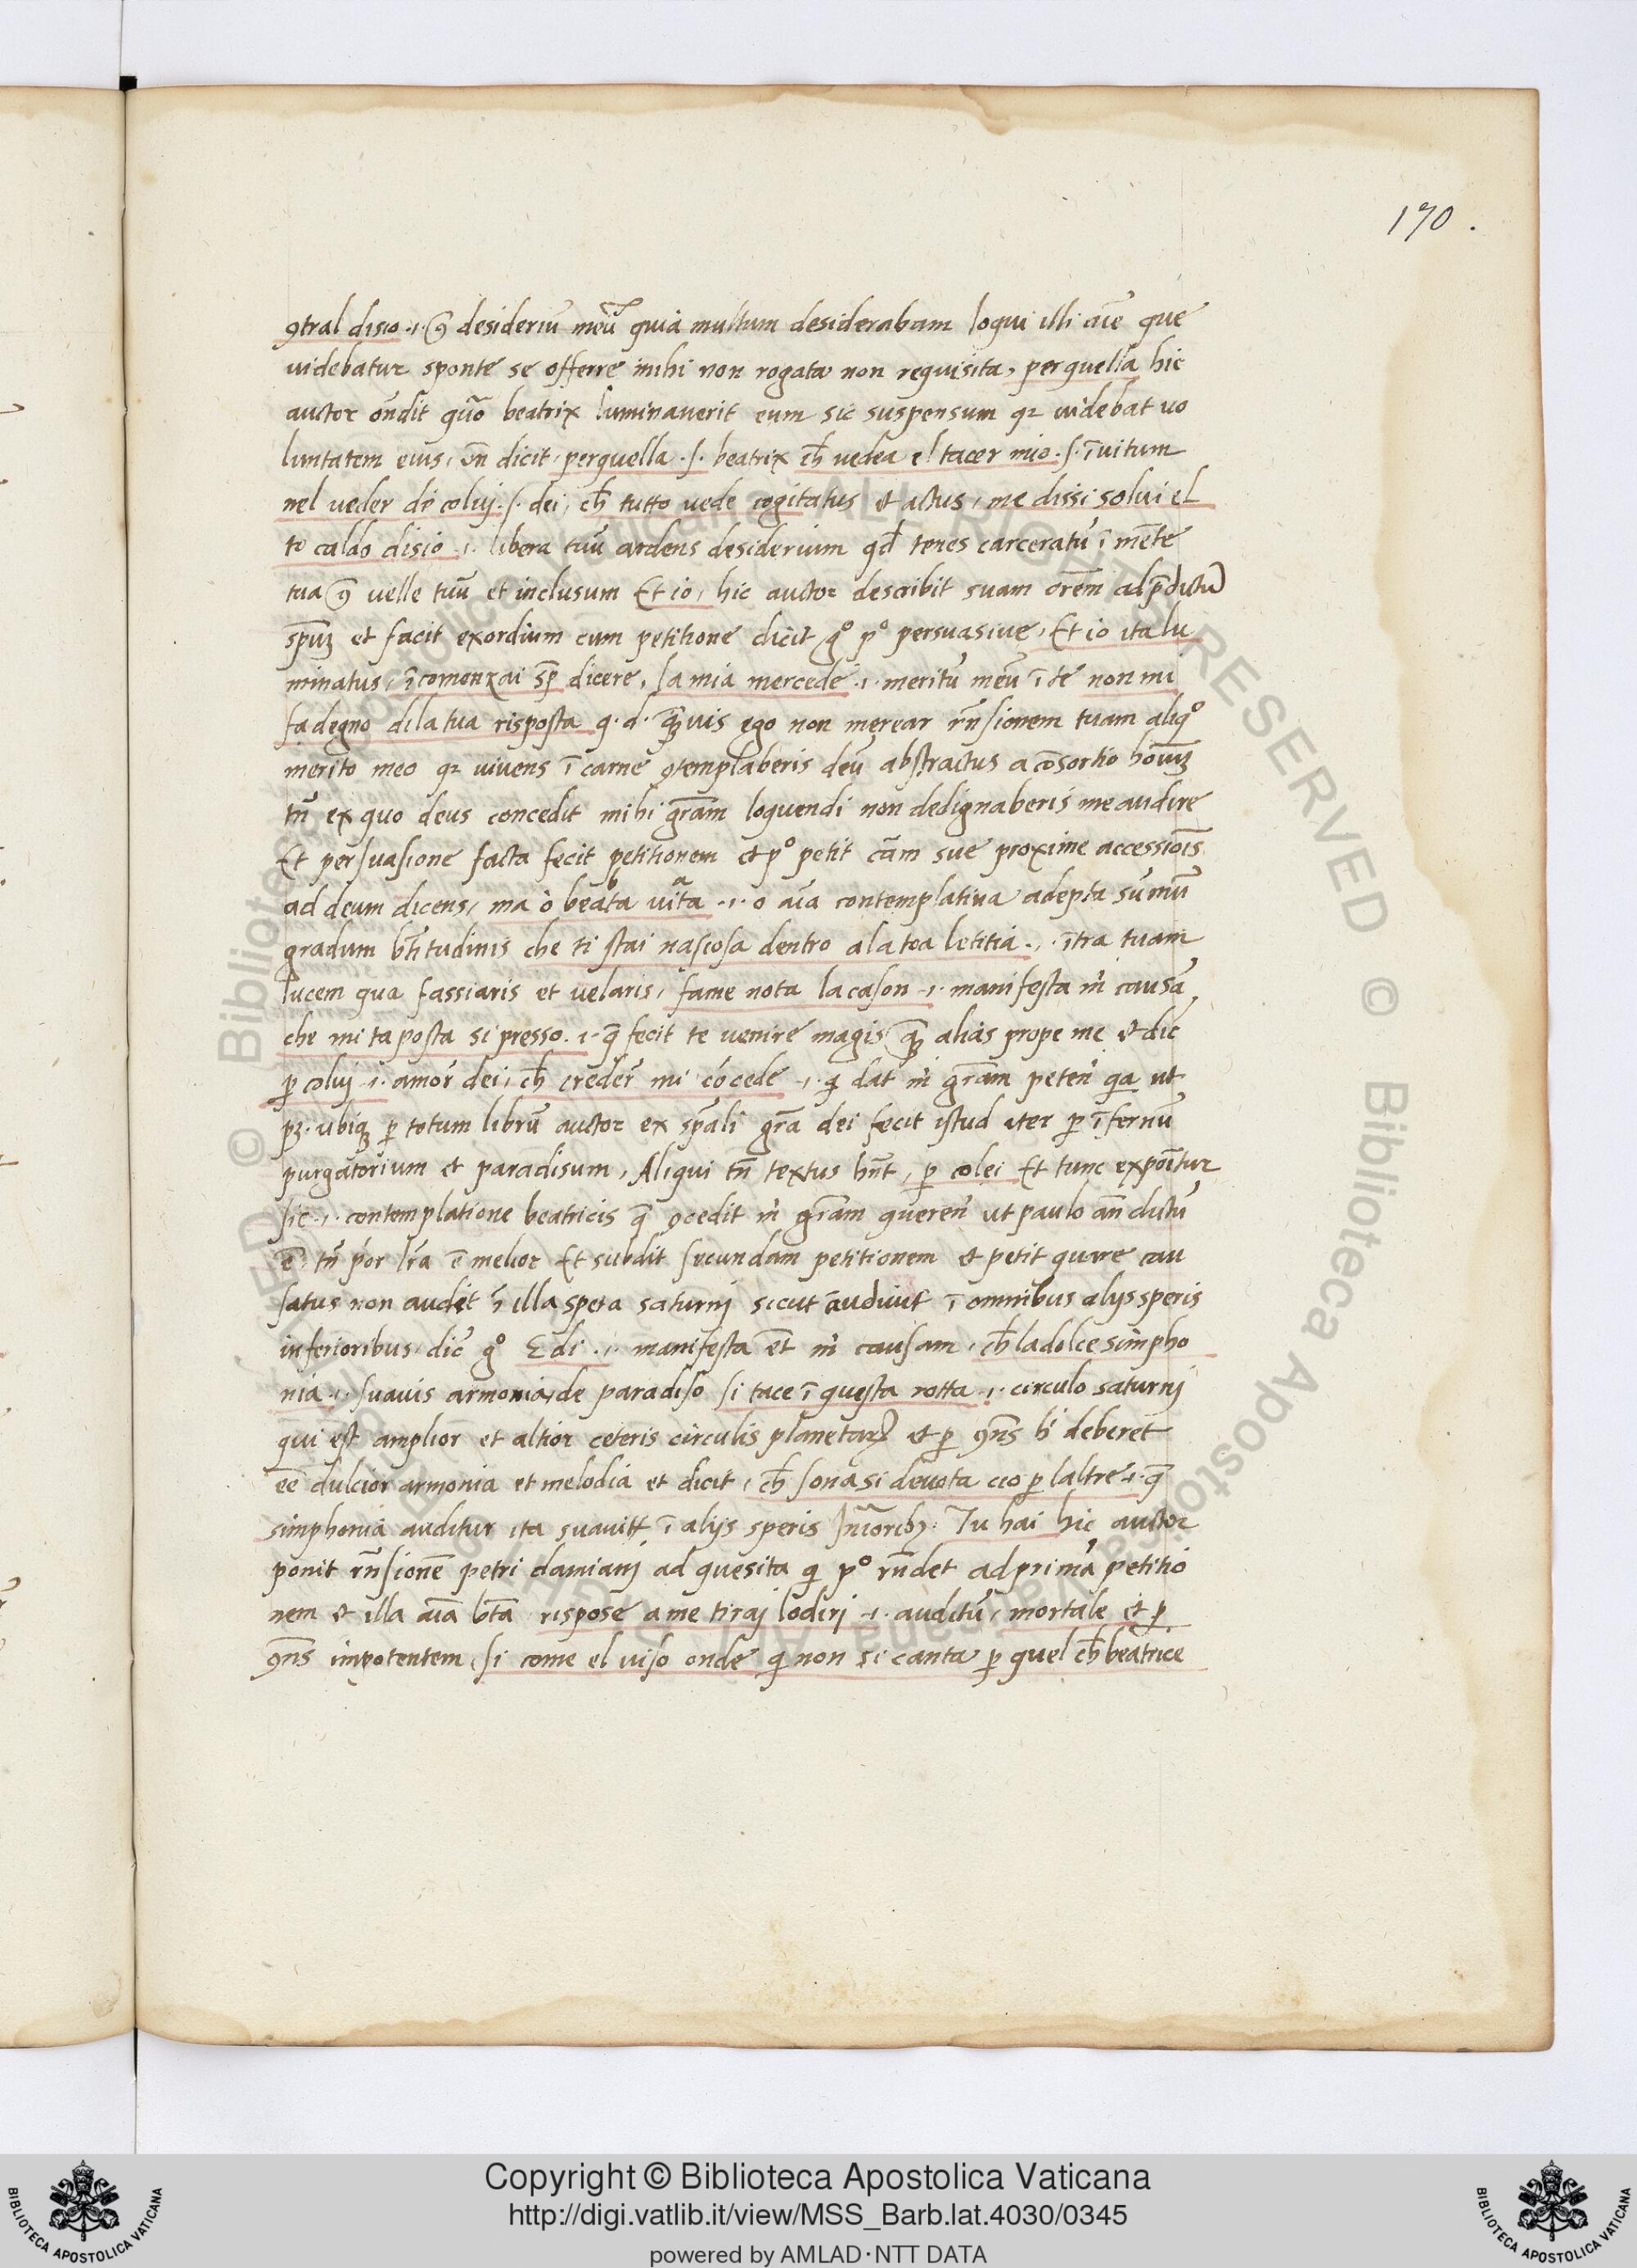 170.
9tral disio .i. 9̃ desideriũ meũ quia multum desiderabam loqui illi aĩe que
uidebatur sponte se offerre mihi non rogata non requisita, per quella hic
auctor oñdit quõ beatrix luminauerit eum sic suspensum qꝛ uidebat uo
luntatem eius, Vñ dicit, perquella .s. beatrix cħ vedea el tacer mio .s. ĩuitum
nel veder di coluj .s. dei, cħ tutto vede cogitatus et actus, me dissi solui el
to caldo disio .i. libera tuũ ardens desiderium qđ tenes carceratũ ĩ mẽte
tua 9̃ uelle tuũ et inclusum Et io, hic auctor describit suam orẽm ad p̃dictũ
sp̃uꝫ et facit exordium cum petitione dicit gͦ pͦ persuasiue, Et io ita lu
minatus, ĩcomenzai sp̃ dicere, la mia mercede .i. meritũ meũ ĩ te non mi
fa degno dila tua risposta q.d. q̃ꝫuis ego non merear rñsionem tuam aliqͦ
merito meo qꝛ uiuens ĩ carne 9templaberis deũ abstractus a cõsortio hoĩuꝫ
tñ ex quo deus concedit mihi gr̃am loquendi non dedignaberis me audire
Et persuasione facta fecit petitionem et pͦ petit cãm sue proxime accessiõis
ad deum dicens, ma o beata uita .i. o aĩa contemplatiua adepta sũmũ
gradum bt̃itudinis che ti stai nascosa dentro ala toa letitia .i. ĩtra tuam
lucem qua fassiaris et velaris, fame nota la cason .i. manifesta m̃ causã
che mi ta posta si presso .i. q̃ fecit te venire magis q̃ꝫ alias prope me et dic̃
ꝑ coluj .i. amor dei, cħ creder mi cõcede .i. q̃ dat m̃ gr̃am peteñ qa ut
pꝫ. ubiqꝫ ꝑ totum librũ auctor ex sp̃ali gr̃a dei fecit istud iter ꝑ ĩfernũ
purgatorium et paradisum, Aliqui tñ textus hñt, ꝑ colei Et tunc expoĩtur
sic .i. contemplatione beatricis q̃ 9cedit m̃ gr̃am quereñ ut paulo añ dictũ
ẽ tñ p̃or lr̃a ẽ melior Et subdit secundam petitionem et petit quare cau
satus non audet ĩ illa spera saturnj sicut audiuit ĩ omnibus alijs speris
inferioribus, dic̃ gͦ E di .i. manifesta et̃ m̃ causam, cħ la dolce simpho
nia .i. suauis armonia, de paradiso si tace ĩ questa rotta .i. circulo saturnj
qui est amplior et altior ceteris circulis planetarꝝ et ꝑ 9ñs b̃ deberet
eẽ dulcior armonia et melodia et dicit, cħ sona si devota cio ꝑ laltre .i. q̃
simphonia auditur ita suauit̃ ĩ alijs speris Tu hai hic auctor
ponit rñsionẽ petri damianj ad quesita q̃ pͦ rñdet ad primã petitio
nem et illa aĩa bt̃a rispose a me tiraj lodirj .i. auditũ, mortale et ꝑ
9ñs impotentem, si come el viso onde q̃ non si canta ꝑ quel cħ beatrice
© Biblioteca Apostolica Vaticana ALL RIGHTS RESERVED
Copyright © Biblioteca Apostolica Vaticana
http://digi.vatlib.it/view/MSS_Barb.lat.4030/0345
powered by AMLAD·NTT DATA
BIBLIOTECA APOSTOLICA VATICANA
BIBLIOTECA APOSTOLICA VATICANA